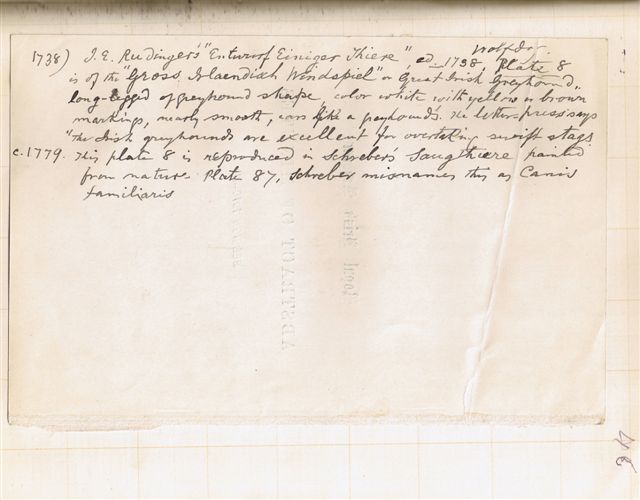 Wolfdog.
1738) J. E. Rudinger's "Entwurf Einiger Thiere", ed. 1738, Plate 8
is of the "Gross Irlaendish Windspiel" or Great Irish Greyhound,
long-legged of greyhound shape, color white with yellow or brown
markings, nearly smooth, ears like a greyhounds. The letter-press says
"The Irish greyhounds are excellent for overtaking swift stags
c. 1779. This plate 8 is reproduced in Schreber's Saugthiere painted
from nature. Plate 87, Schreber misnames this as Canis
familiaris